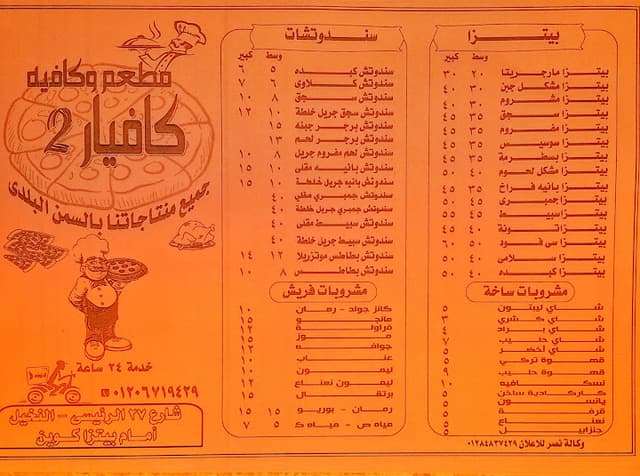 مطعم وكافيه
كافيار 2
جميع منتاجاتنا بالسمن البلدى
خدمة ٢٤ ساعة
٠١٢٠٦٧١٩٤٢٩
شارع ٢٧ الرئيسى - النخيل
أمام بيتزا كوين
بيتزا
وسط كبير
بيتزا مارجريتا ٢٠ ٣٠
بيتزا مشكل جبن ٣٠ ٤٠
بيتزا مشروم ٣٠ ٤٠
بيتزا سجق ٣٥ ٤٥
بيتزا مفروم ٣٥ ٤٥
بيتزا سوسيس ٣٥ ٤٥
بيتزا بسطرمة ٣٥ ٤٥
بيتزا مشكل لحوم ٤٠ ٥٠
بيتزا بانيه فراخ ٣٥ ٤٥
بيتزا جمبرى ٤٥ ٥٥
بيتزا سبيط ٤٥ ٥٥
بيتزا تونة ٤٠ ٤٥
بيتزا سى فود ٥٠ ٦٠
بيتزا سلامى ٤٠ ٥٠
بيتزا كبده ٤٠ ٥٠
مشروبات ساخة
شاى ليبتون ٥
شاى كشرى ٣
شاى براد ٤
شاى حليب ٧
شاى أخضر ٥
قهوة تركى ٥
قهوة حليب ٩
نسكافيه ١٠
كاركادية ساخن ٥
يانسون ٥
قرفة ٥
نعناع ٥
جنزابيل ٥
وكالة نصر للاعلان ٠١٢٨٤٨٣٧٤٢٩
سندوتشات
وسط كبير
سندوتش كبده ٥ ٦
سندوتش كلاوى ٦ ٧
سندوتش سجق ٨ ١٠
سندوتش سجق جريل خلطة ١٠ ١٢
سندوتش برجر جبنه ١٥
سندوتش برجر لحم ١٣
سندوتش لحم مفروم جريل ٨ ١٠
سندوتش بانيه مقلى ١٠ ١٥
سندوتش بانيه جريل خلطة ١٠ ١٥
سندوتش جمبرى مقلى ٤٠
سندوتش جمبري جريل خلطة ٤٠
سندوتش سبيط مقلى ٤٠
سندوتش سبيط جريل خلطة ٤٠
سندوتش بطاطس موتزريلا ١٢ ١٤
سندوتش بطاطس ٨ ١٠
مشروبات فريش
كانز جولد - رمان ١٠
مانجو ١٥
فراولة ١٢
موز ١٥
جوافه ١٢
عناب ١٢
ليمون ١٠
ليمون نعناع ١٢
برتقال ١٥
رمان - بوريو ١٥ ١٥
مياه ص - مياه ك ٥ ٧